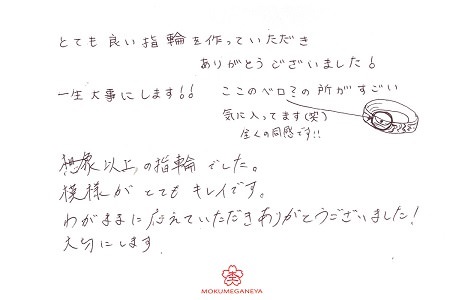 とても良い指輪を作っていただき
ありがとうございました!
一生大事にします!!
ここのベロ?の所がすごい
気に入ってます(笑)
全くの同感です!!
想象以上の指輪でした。
模様がとてもキレイです。
わがままに応えていただきありがとうございました!
大切にします
MOKUMEGANEYA